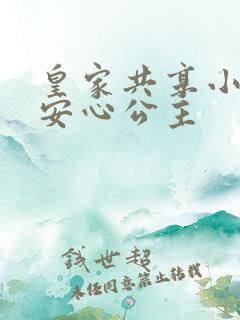 皇家共享小
安心公主
钱世超
未经同意禁止转载